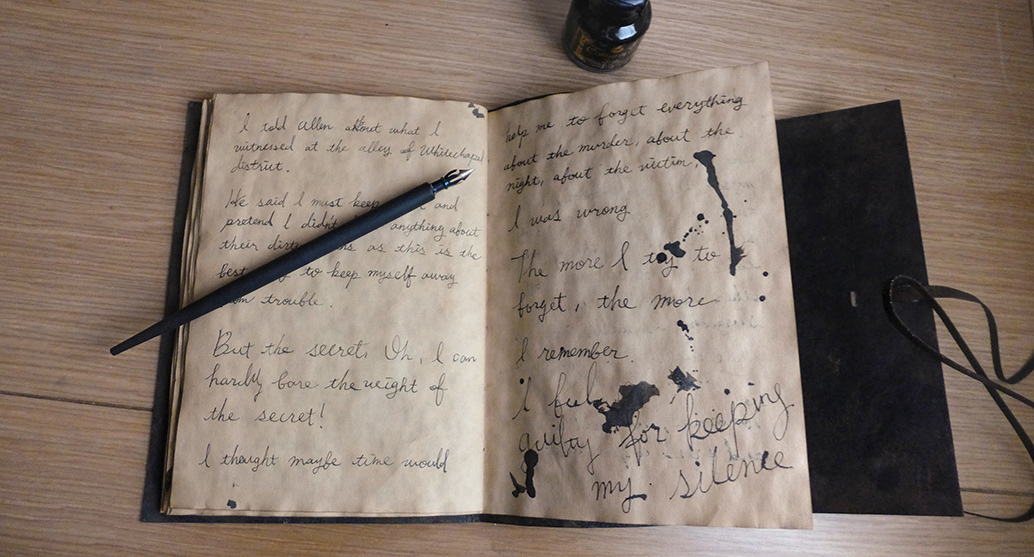 I told Allen about what I
witnessed at the alley of Whitechapel
district.
He said I must keep and
pretend I didn't anything about
their as this is the
to keep myself away
trouble.
But the secret. Oh, I can
hardly bare the weight of
the secret!
I thought maybe time would
help me to forget everything
about the murder, about the
night, about the victim.
I was wrong
The more I try to
forget, the more
I remember.
I feel
guilty for keeping
my silence